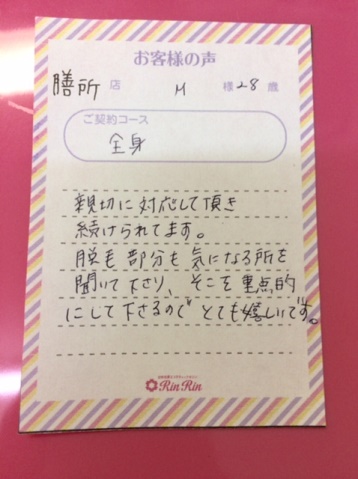 お客様の声
膳所 店 M 様 28 歳
ご契約コース
全身
親切に対応して頂き
続けられてます。
脱毛部分も気になる所を
聞いて下さり、そこを重点的
にして下さるので とても嬉しいです。
RinRin